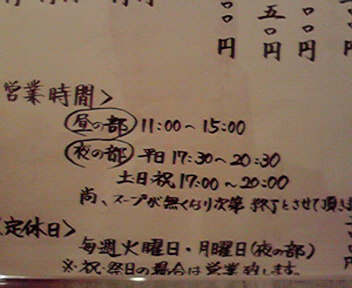 五
〇〇〇〇
〇〇〇〇
円円円円
営業時間>
昼の部 11:00~15:00
夜の部 平日 17:30~20:30
土日祝 17:00~20:00
尚、スープが無くなり次第 終了とさせて頂きま
定休日>
毎週火曜日・月曜日(夜の部)
※祝・祭日の場合は営業致します。